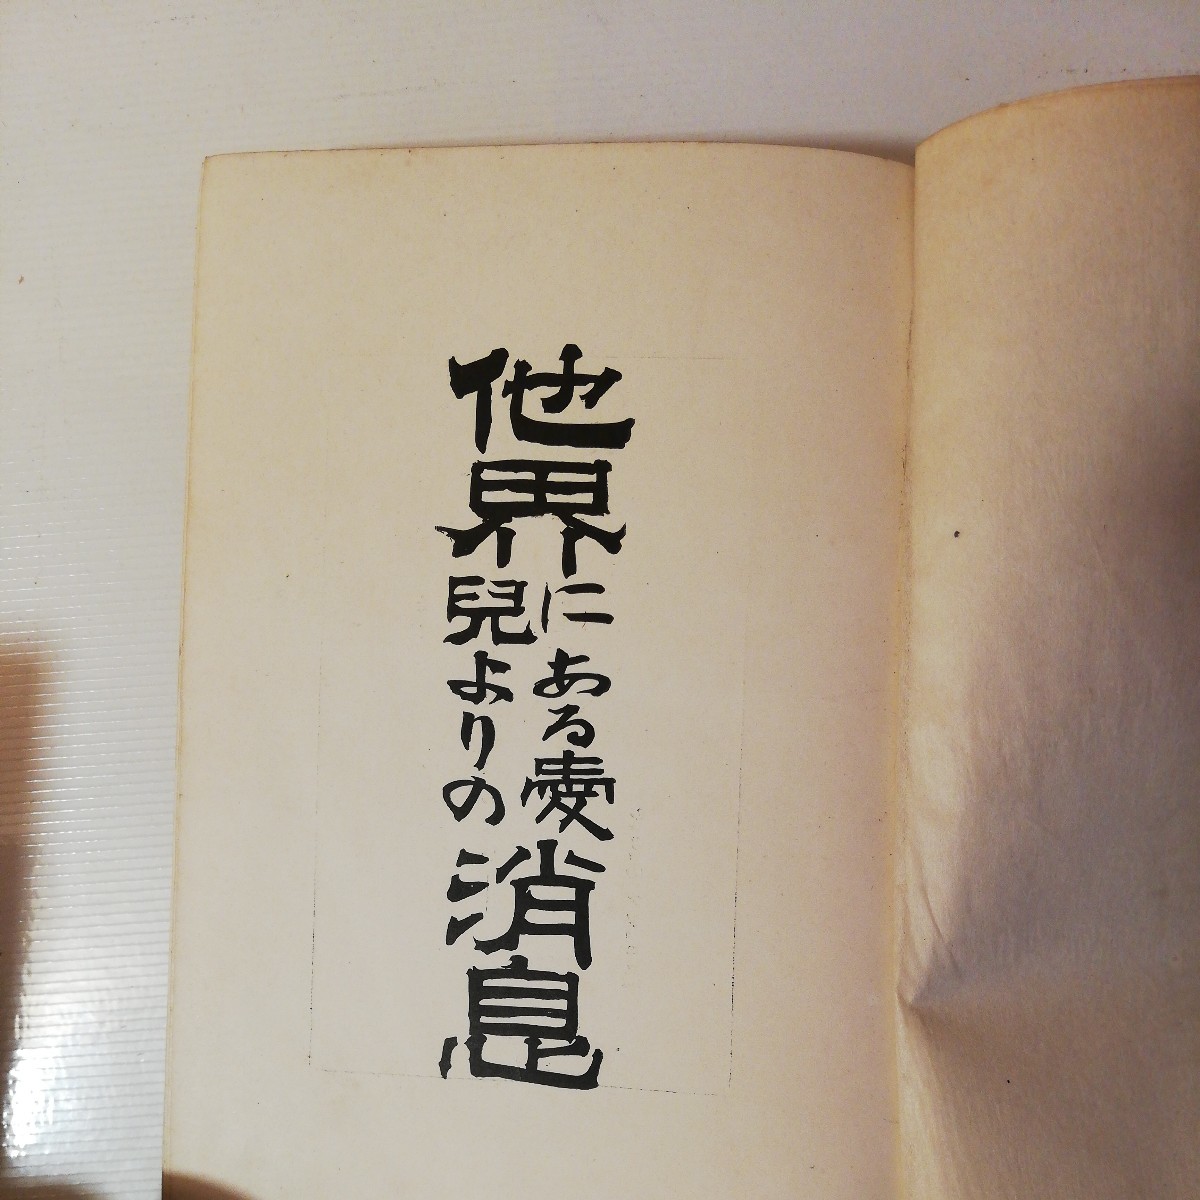 他界
にある愛
兒よりの
消息